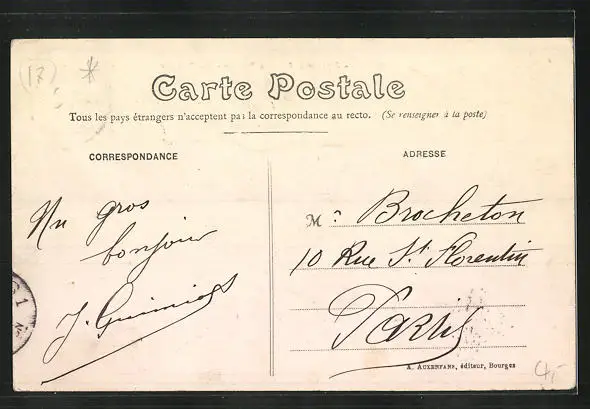 Carte Postale
Tous les pays étrangers n'acceptent pas la correspondance au recto. (Se renseigner à la poste)
CORRESPONDANCE
Un gros
bonjour
ADRESSE
Mr Brocheton
10 Rue St Florentin
Paris
A. AUXENFANS, éditeur, Bourges